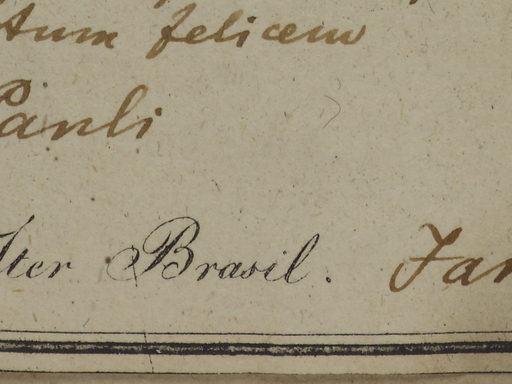 tum felicem
Pauli
Iter Brasil. Jan